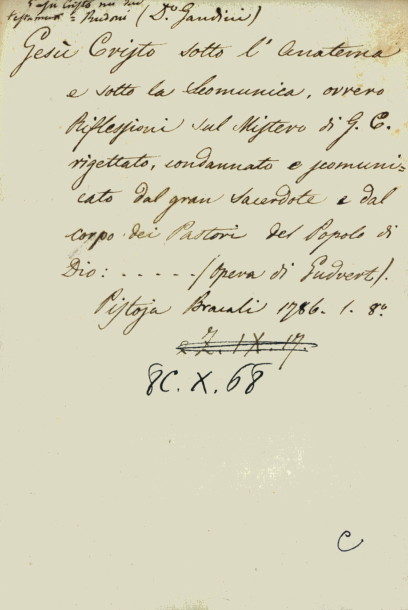 Gesù Cristo
= Bedoni (D.º Gandini)
Gesù Cristo sotto l'Anatema
e sotto la Scomunica, ovvero
Riflessioni sul Mistero di G. C.
rigettato, condannato e scomuni=
cato dal gran Sacerdote e dal
corpo dei Pastori del Popolo di
Dio: - - - - - (Opera di Gudvert).
Pistoja Bracali 1786. 1. 8º
2. Z. IX. 17.
8C. X. 68
C